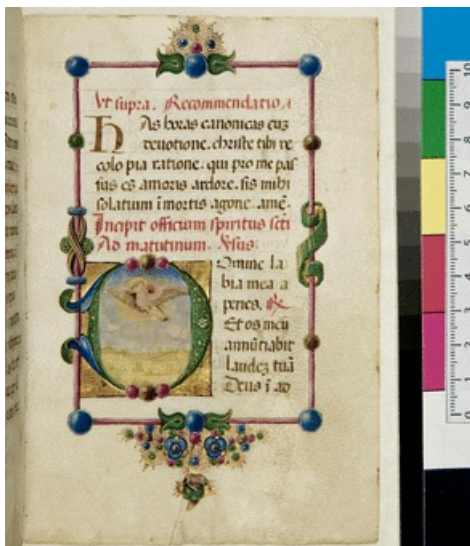 Ut supra. Recommendatio.
has horas canonicas cuz
deuotione. christe tibi re
colo pia ratione. qui pro me pas
sus es amoris ardore. sis mihi
solatium i mortis agone. amē.
Incipit officium spiritus scti
Ad matutinum. Vsus.
Domine la
bia mea a
peries. R
Et os meū
annūtiabit
laudez tuā
Deus ī ad
0 1 2 3 4 5 6 7 8 9 10